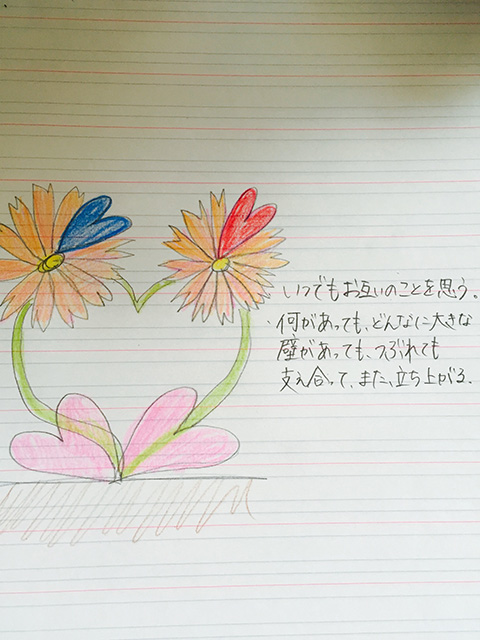 いつでもお互いのことを思う。
何があっても、どんなに大きな
壁があっても、つぶれても
支え合って、また、立ち上がる.